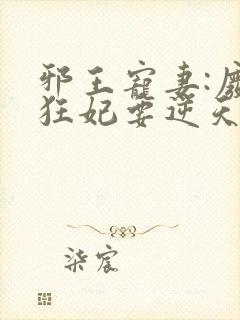 邪王寵妻:廢
狂妃要逆天
柒宸